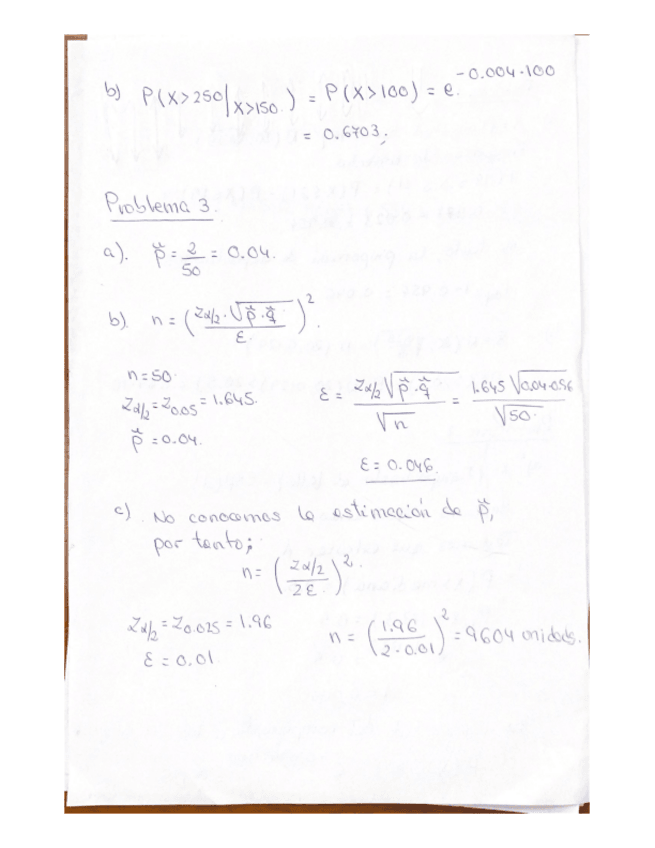 b) P(X>250|X>150.) = P(X>100) = e^-0.004·100
= 0.6703;
Problema 3.
a). p̂ = 2/50 = 0.04.
b). n = (Zα/2·√p̂·q̂ / ε.)^2.
n = 50.
Zα/2 = Z0.05 = 1.645.
p̂ = 0.04.
ε = Zα/2√p̂·q̂ / √n = 1.645√0.04·0.96 / √50.
ε = 0.046.
c). No conocemos la estimación de p̂,
por tanto;
n = (Zα/2 / 2ε.)^2.
Zα/2 = Z0.025 = 1.96
ε = 0.01.
n = (1.96 / 2·0.01)^2 = 9604 unidads.